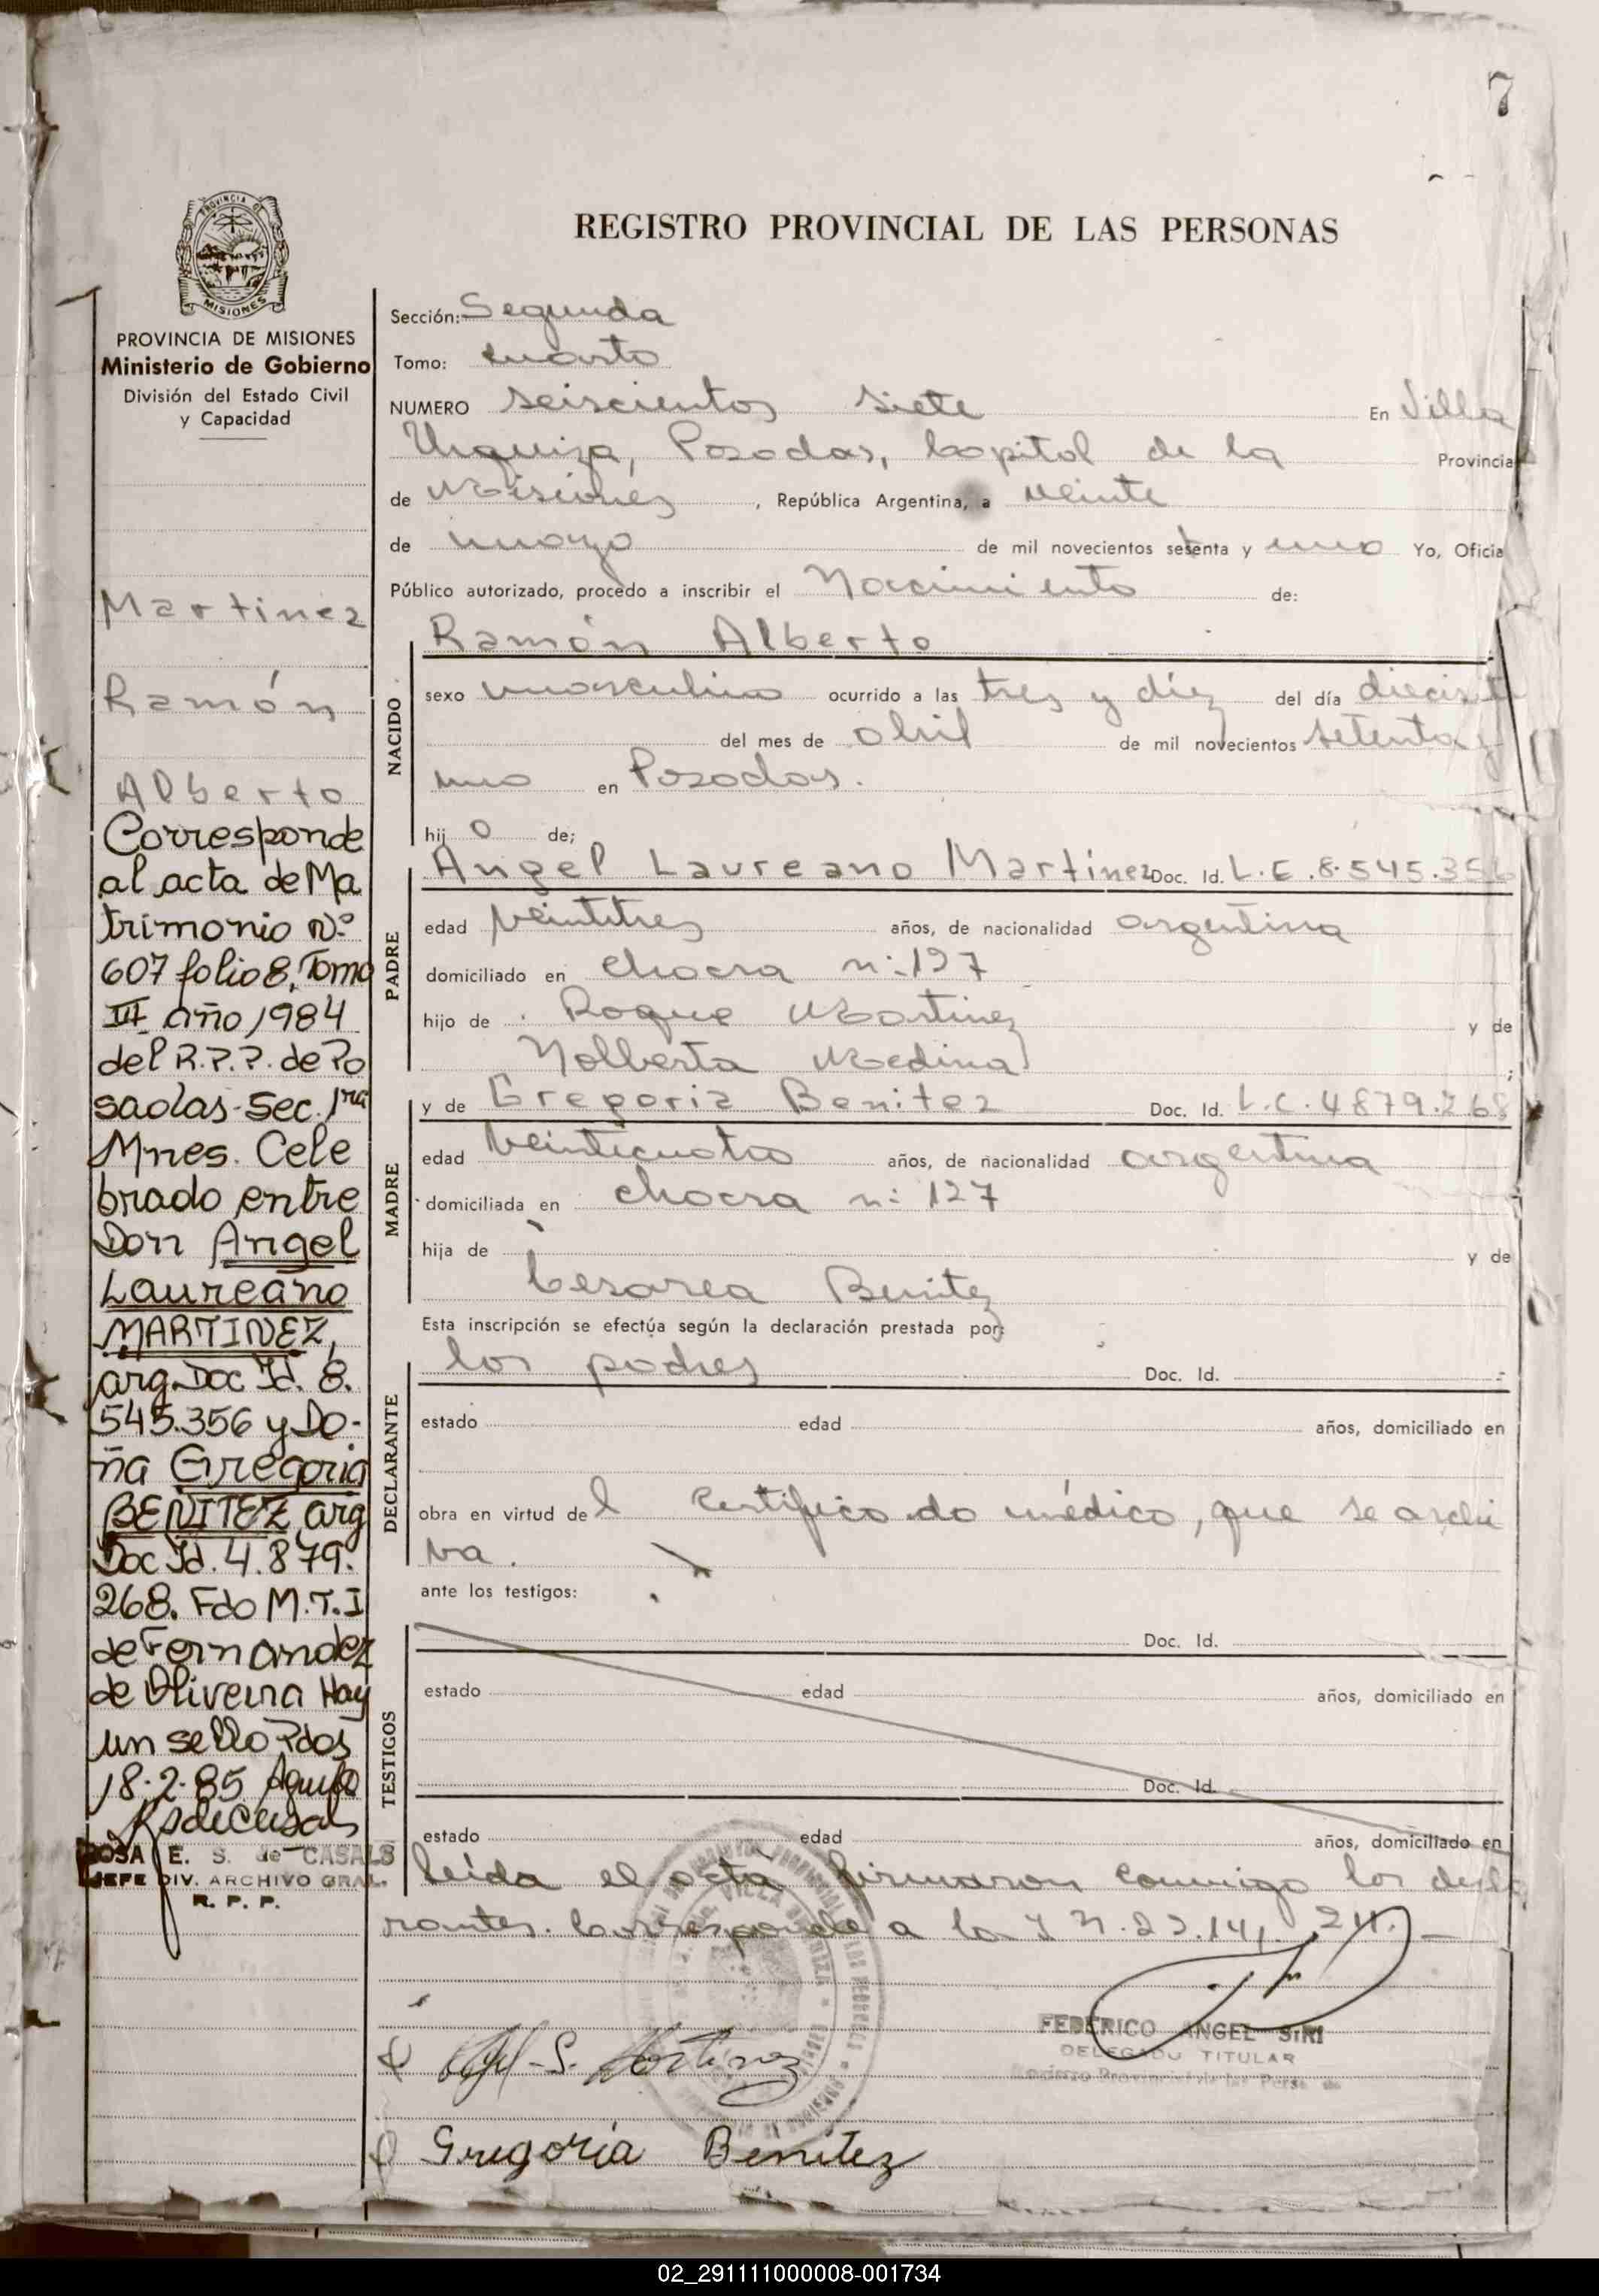 7
REGISTRO PROVINCIAL DE LAS PERSONAS
PROVINCIA DE
MISIONES
PROVINCIA DE MISIONES
Ministerio de Gobierno
División del Estado Civil
y Capacidad
Martinez
Ramón
Alberto
Corresponde
al acta de Ma
trimonio Nº
607 folio 8, Tomo
III año 1984
del R.P.P. de Po
sadas-Sec. 1ra
Mnes. Cele
brado entre
Don Angel
Laureano
MARTINEZ,
arg. Doc Id. 8.
545.356 y Do-
ña Gregoria
BENITEZ, arg
Doc Id. 4.879.
268. Fdo M.T.I
de Fernandez
de Oliveira Hay
un sello Pdas
18-2-85
ROSA E. S. de CASALS
JEFE DIV. ARCHIVO GRAL.
R. P. P.
Sección: Segunda
Tomo: cuarto
NUMERO seiscientos siete En Villa
Urquiza, Posadas, Capital de la Provincia
de Misiones, República Argentina, a veinte
de mayo de mil novecientos setenta y uno Yo, Oficia
Público autorizado, procedo a inscribir el Nacimiento de:
Ramón Alberto
NACIDO
sexo masculino ocurrido a las tres y diez del día
del mes de abril de mil novecientos setenta y
uno en Posadas.
hij o de;
PADRE
Angel Laureano Martinez Doc. Id. L.E. 8.545.356
edad veintitres años, de nacionalidad argentina
domiciliado en chacra n: 127
hijo de Roque Martinez y de
Nolberta Medina
MADRE
y de Gregoria Benitez Doc. Id. L.C. 4879.268
edad veinticuatro años, de nacionalidad argentina
domiciliada en chacra n: 127
hija de y de
Cesarea Benitez
Esta inscripción se efectúa según la declaración prestada por:
DECLARANTE
los padres Doc. Id.
estado edad años, domiciliado en
obra en virtud de l certificado médico, que se archi
va.
ante los testigos:
TESTIGOS
Doc. Id.
estado edad años, domiciliado en
Doc. Id.
estado edad años, domiciliado en
leída el acta firmaron conmigo los decla
rantes. Corresponde a la
FEDERICO ANGEL SIRI
DELEGADO TITULAR
Registro Provincial de las Personas
Gregoria Benítez
02_291111000008-001734